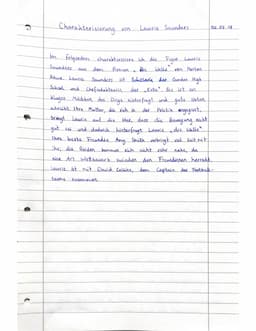 Charakterisierung von Laurie Saunders
Im folgenden charakterisiere ich die Figur Laurie
Saunders aus dem Roman „die Welle" von Morton
Rhue. Laurie Saunders ist Schülerin der Gordon High
School und Chefredakteurin der
kluges Mädchen, das Dinge hinterfragt und gute Noten
schreibt. Ihre Mutter, die sich in der Politik engagiert,
bringt Laurie auf die Idee, dass die Bewegung nicht
gut sei und dadurch hinterfragt Laurie „die Welle"
Ihre beste Freundin Amy Smith verbringt viel Zeit mit
ihr, die Beiden kommen sich nicht sehr nahe, da
eine Art Wettbewerb zwischen den Freundinnen herrscht.
Laurie ist mit David Collins, dem Captain des Football-
teams zusammen.